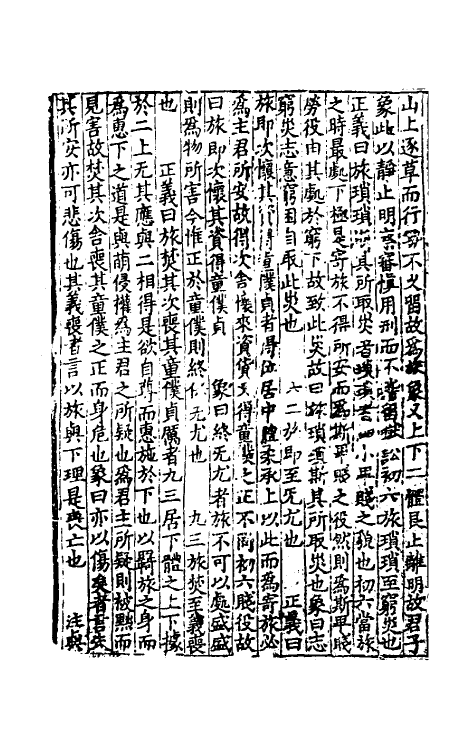 山上逐草而行勢不久留故爲旅象又上下二體艮止離明故君子
象此以靜止明察審慎用刑而不稽留獄訟初六旅瑣瑣至窮災也
正義曰旅瑣瑣斯其所取災者瑣瑣者細小卑賤之貌也初六當旅
之時最處下極是寄旅不得所安而爲斯卑賤之役然則爲斯卑賤
勞役由其處於窮下故致此災故曰旅瑣瑣斯其所取災也象曰志
窮災志意窮困自取此災也 六二旅即至无尤也 正義曰
旅即次懷其資得童僕貞者得位居中體柔承上以此而爲寄旅必
爲主君所安故得次舍懷來資貨又得童僕之正不同初六賤役故
曰旅即次懷其資得童僕貞 象曰終无尤者旅不可以處盛盛
則爲物所害今惟正於童僕則終保无尤也 九三旅焚至義喪
也 正義曰旅焚其次喪其童僕貞厲者九三居下體之上下據
於二上无其應與二相得是欲自尊而惠施於下也以羇旅之身而
爲惠下之道是與萌侵權爲主君之所疑也爲君主所疑則被黜而
見害故焚其次舍喪其童僕之正而身危也象曰亦以傷矣者言失
其所安亦可悲傷也其義喪者言以旅與下理是喪亡也 注與